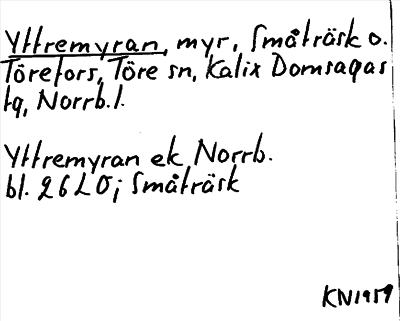 Yttremyran, myr, Småträsk o.
Törefors, Töre sn, Kalix Domsagas
tg, Norrb. l.
Yttremyran ek Norrb.
bl. 26 L Ö; Småträsk
KN 1959